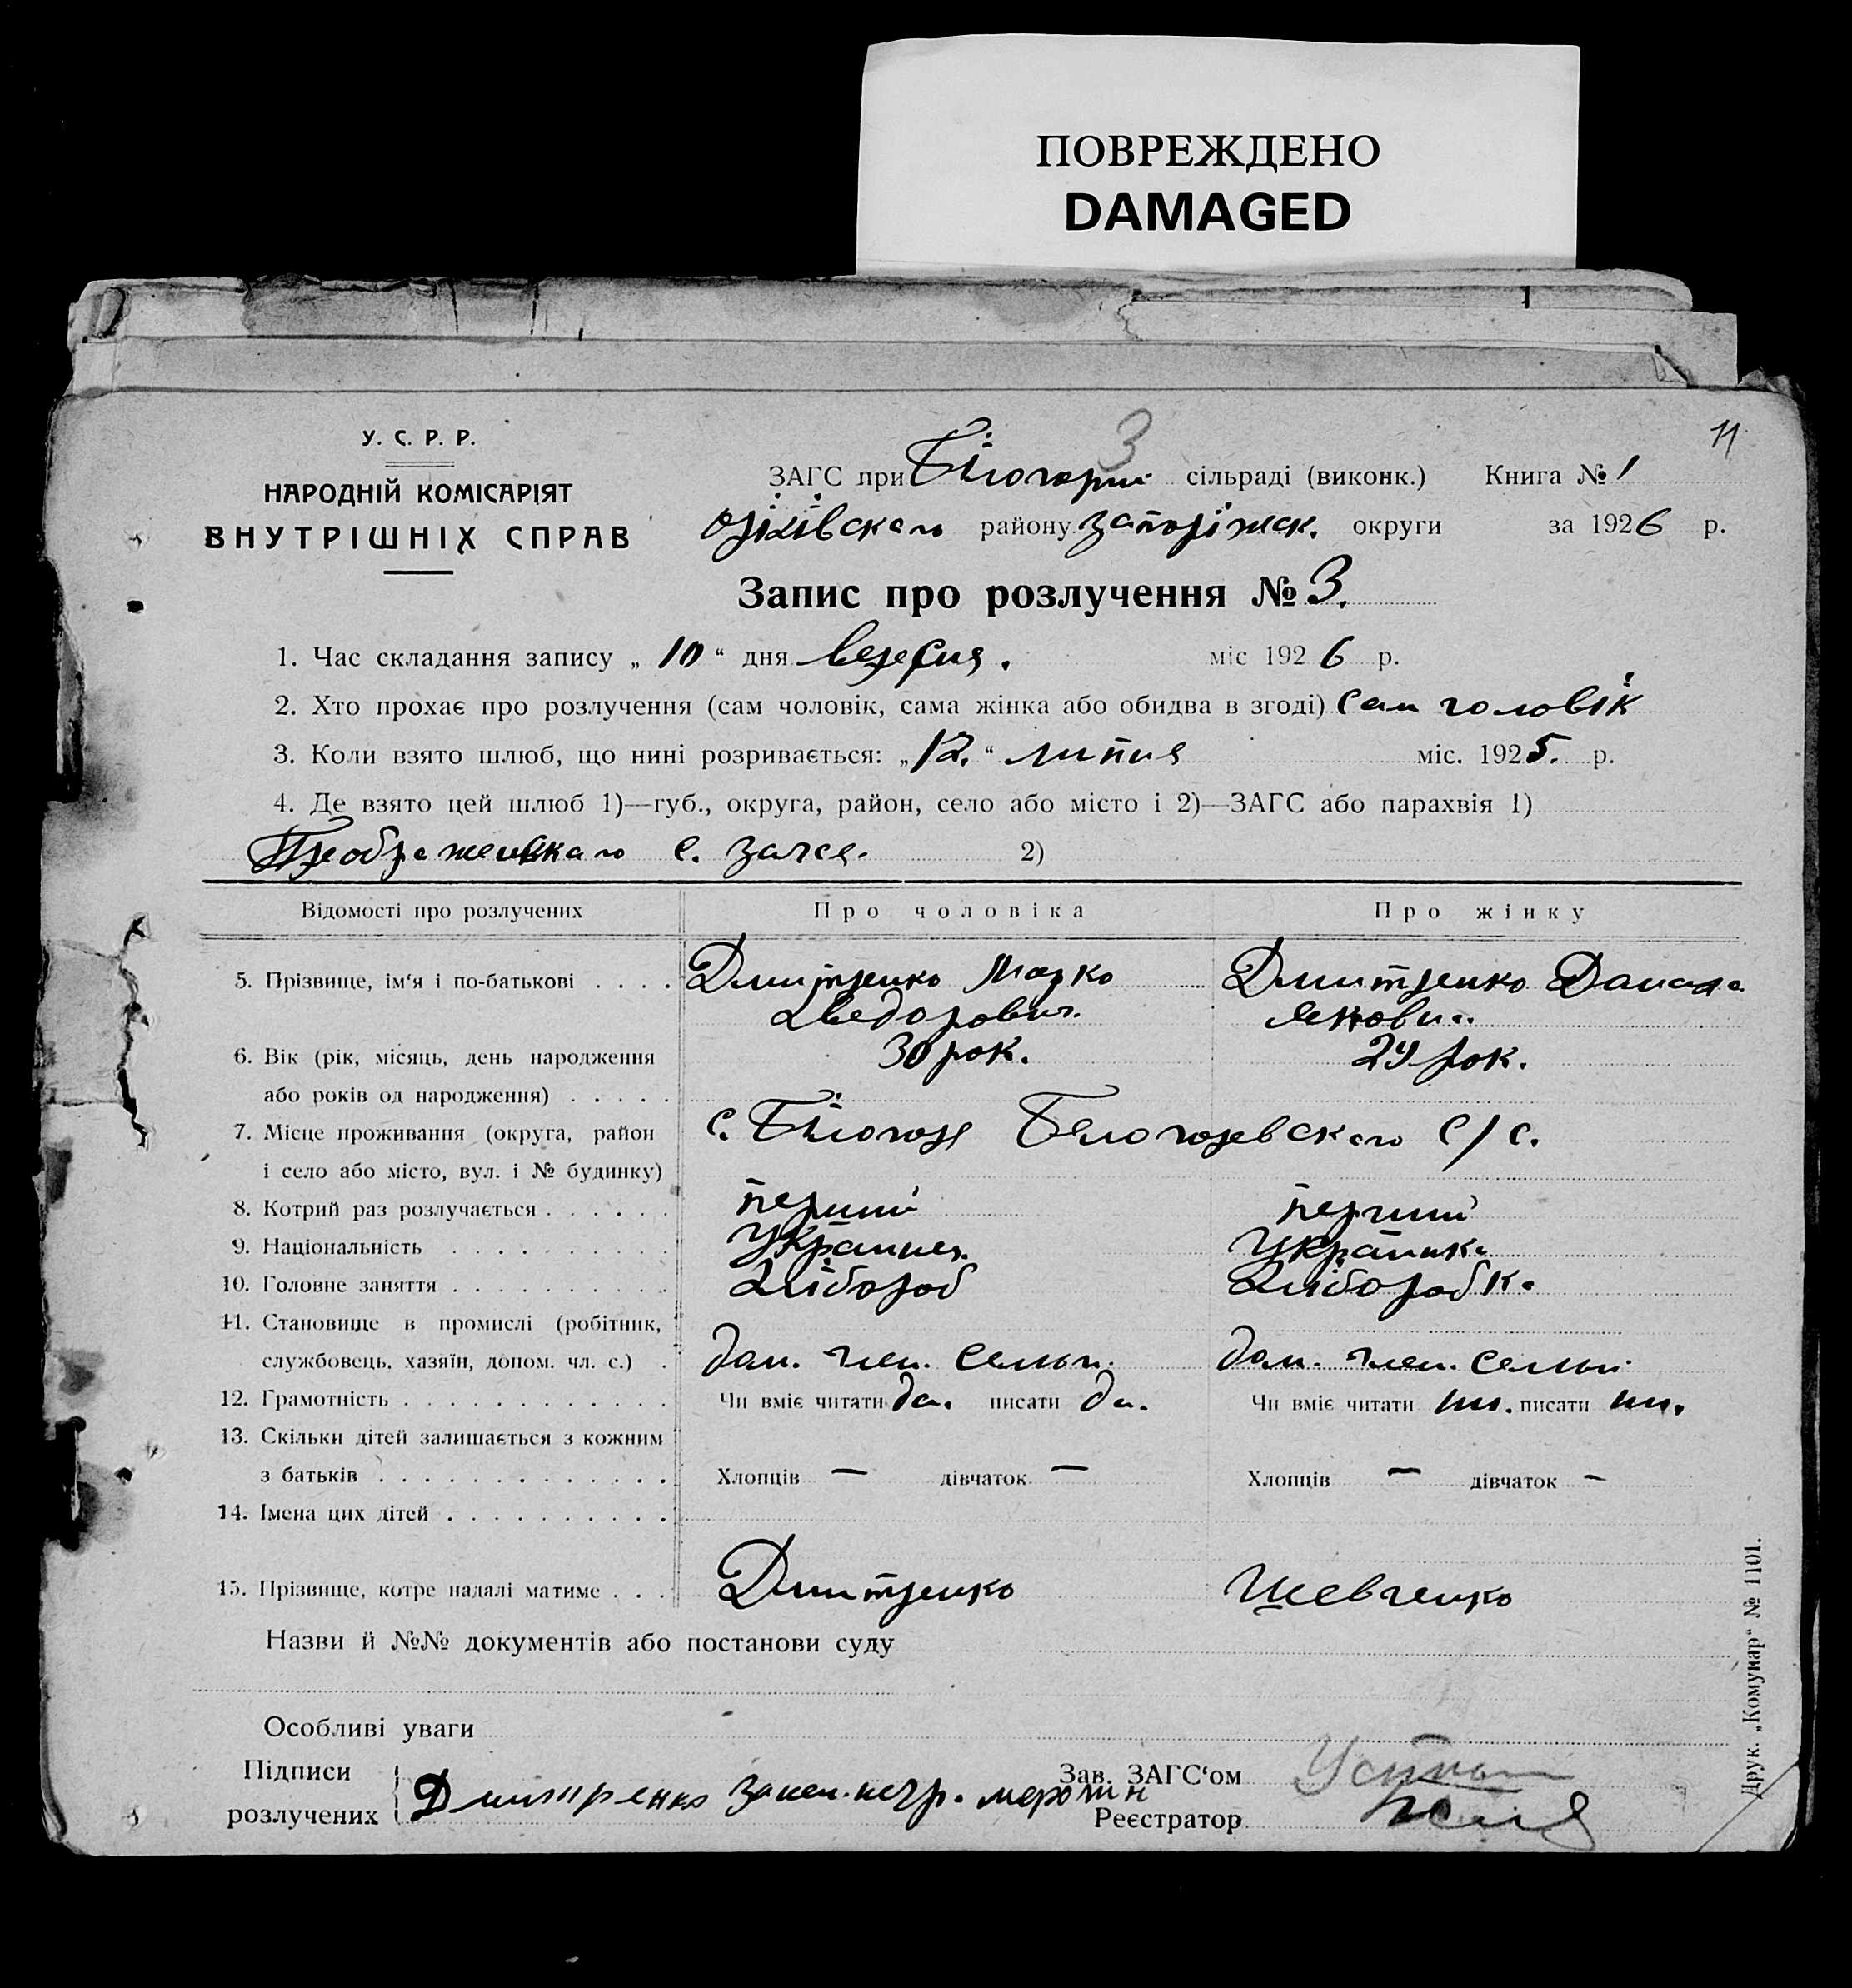 ПОВРЕЖДЕНО
DAMAGED
11
3
У. С. Р. Р.
НАРОДНІЙ КОМІСАРІЯТ
ВНУТРІШНІХ СПРАВ
ЗАГС при Білогорій сільраді (виконк.) Книга № 1
Оріхівського району Запоріжськ. округи за 1926 р.
Запис про розлучення № 3.
1. Час складання запису „ 10 “ дня вересня. міс 1926 р.
2. Хто прохає про розлучення (сам чоловік, сама жінка або обидва в згоді) сам чоловік
3. Коли взято шлюб, що нині розривається: „ 12. “ липня міс. 1925. р.
4. Де взято цей шлюб 1)—губ., округа, район, село або місто і 2)—ЗАГС або парахвія 1)
Преображенського с. загсе. 2)
Відомості про розлучених Про чоловіка Про жінку
5. Прізвище, ім‘я і по-батькові . . . . Дмитренко Марко Дмитренко
Хведорович
6. Вік (рік, місяць, день народження 30 рок. 24 рок.
або років од народження) . . . . .
7. Місце проживання (округа, район с. Білогоре Белогоревского с/с.
і село або місто, вул. і № будинку)
8. Котрий раз розлучається . . . . . . перший перший
9. Національність . . . . . . . . . . Українец. Українка
10. Головне заняття . . . . . . . . . . Хлібороб Хлібороб ка
11. Становище в промислі (робітник,
службовець, хазяїн, допом. чл. с.) . доп. член. семьи. доп. член. семьи.
12. Грамотність . . . . . . . . . . . . Чи вміє читати да. писати да. Чи вміє читати ни. писати ни.
13. Скільки дітей залишається з кожним
з батьків . . . . . . . . . . . . . Хлопців — дівчаток — Хлопців — дівчаток —
14. Імена цих дітей . . . . . . . . . .
15. Прізвище, котре надалі матиме . . . Дмитренко Шевченко
Назви й №№ документів або постанови суду
Особливі уваги
Підписи
розлучених Дмитренко
Зав. ЗАГС‘ом
Реєстратор
Друк. „Комунар“ № 1101.